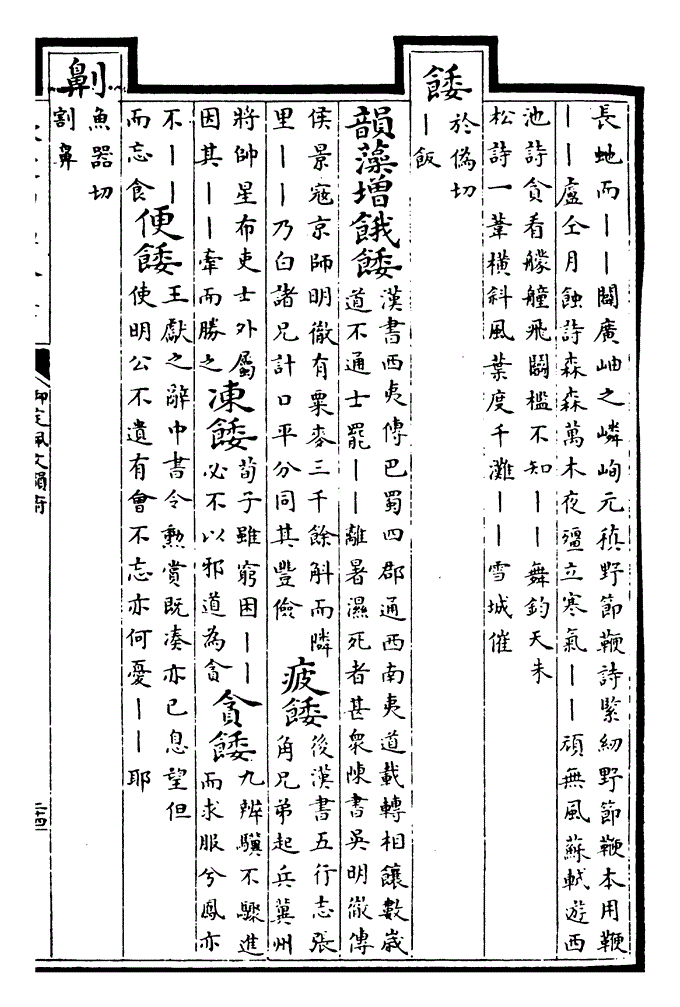 長虵而丨丨闚廣岫之嶙峋元稹野節鞭詩緊紉野節鞭本用鞭
丨丨盧仝月蝕詩森森萬木夜殭立寒氣丨丨頑無風蘇軾遊西
池詩貪看艨艟飛鬭檻不知丨丨舞鈞天朱
松詩一葦橫斜風葉度千灘丨丨雪城催
餧
於偽切
丨飯
韻藻增餓餧
漢書西夷傳巴蜀四郡通西南夷道載轉相饟數歲
道不通士罷丨丨離暑濕死者甚衆陳書吳明徹傳
侯景寇京師明徹有粟麥三千餘斛而隣
里丨丨乃白諸兄計口平分同其豐儉
疲餧
後漢書五行志張
角兄弟起兵冀州
將帥星布吏士外屬
因其丨丨牽而勝之
凍餧
荀子雖窮困丨丨
必不以邪道為貪
貪餧
九辨驥不驟進
而求服兮鳳亦
不丨丨
而忘食
便餧
王獻之辭中書令勲賞既湊亦已息望但
使明公不遺有會不忘亦何憂丨丨耶
劓
魚器切
割鼻
御定佩文韻府